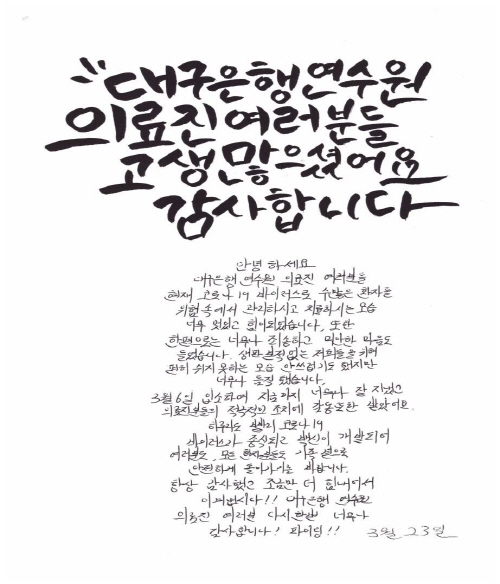 대구은행연수원
의료진여러분들
고생많으셨어요
감사합니다
안녕하세요
대구은행 연수원 의료진 여러분들
현재 코로나 19 바이러스로 수많은 환자들
위험속에서 관리하시고 치료하시는 모습
너무 멋있고 힘이되었습니다. 또한
한편으로는 너무나 죄송하고 미안한 마음도
들었습니다. 생판 모르는 저희들을 위해
편히 쉬지 못하는 모습 안쓰럽기도 했지만
너무나 든든 했습니다.
3월 6일 입소하여 지금까지 너무나 잘 지냈고
의료진분들의 적극적인 조치에 감동또한 받았어요.
하루라도 빨리 코로나 19
바이러스가 종식되고 백신이 개발되어
여러분도, 모든 환자분들도 가족 곁으로
안전하게 돌아가기를 바랍니다.
항상 감사했고 조금만 더 힘내어서
이겨냅시다!! 대구은행 연수원
의료진 여러분 다시한번 너무나
감사합니다! 화이팅!! 3월 23일